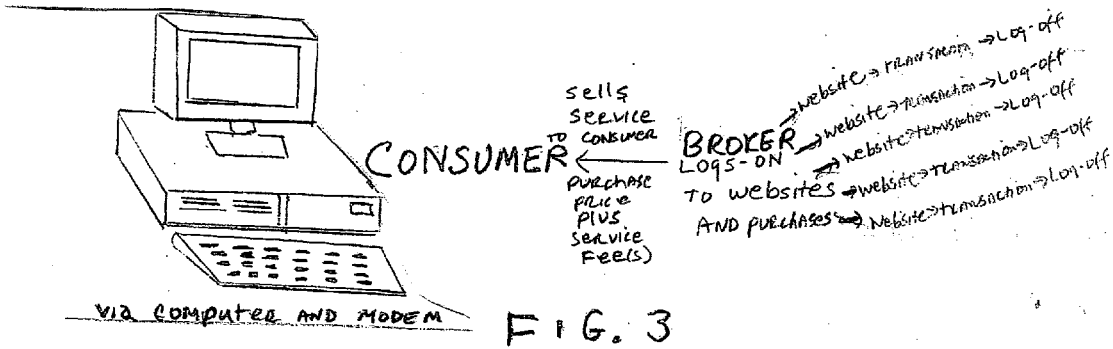 CONSUMER
via computer AND MODEM
sells
service
TO CONSUMER
purchase
price
plus
service
Fee(s)
BROKER
LOGS-ON
TO websites
AND purchases
website → transaction → Log-off
website → transaction → Log-off
website → transaction → Log-off
website → transaction → Log-off
website → transaction → Log-off
FIG. 3